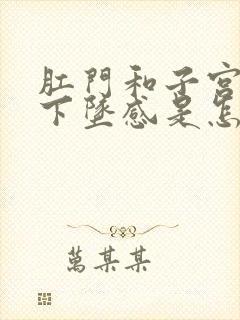 肛門和子宮
下墜感是怎
萬某某